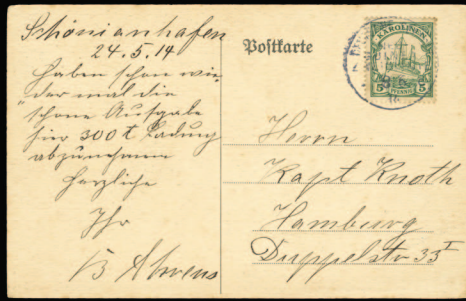 Schönianhafen
24.5.14
Haben schon wie-
der mal die
schöne Aufgabe
hier 300 t Ladung
abzunehmen
Herzliche
Ihr
B Ahrens
Postkarte
KAROLINEN
5 PFENNIG 5
Herrn
Kapt Knoth
Hamburg
Duppelstr 33 I